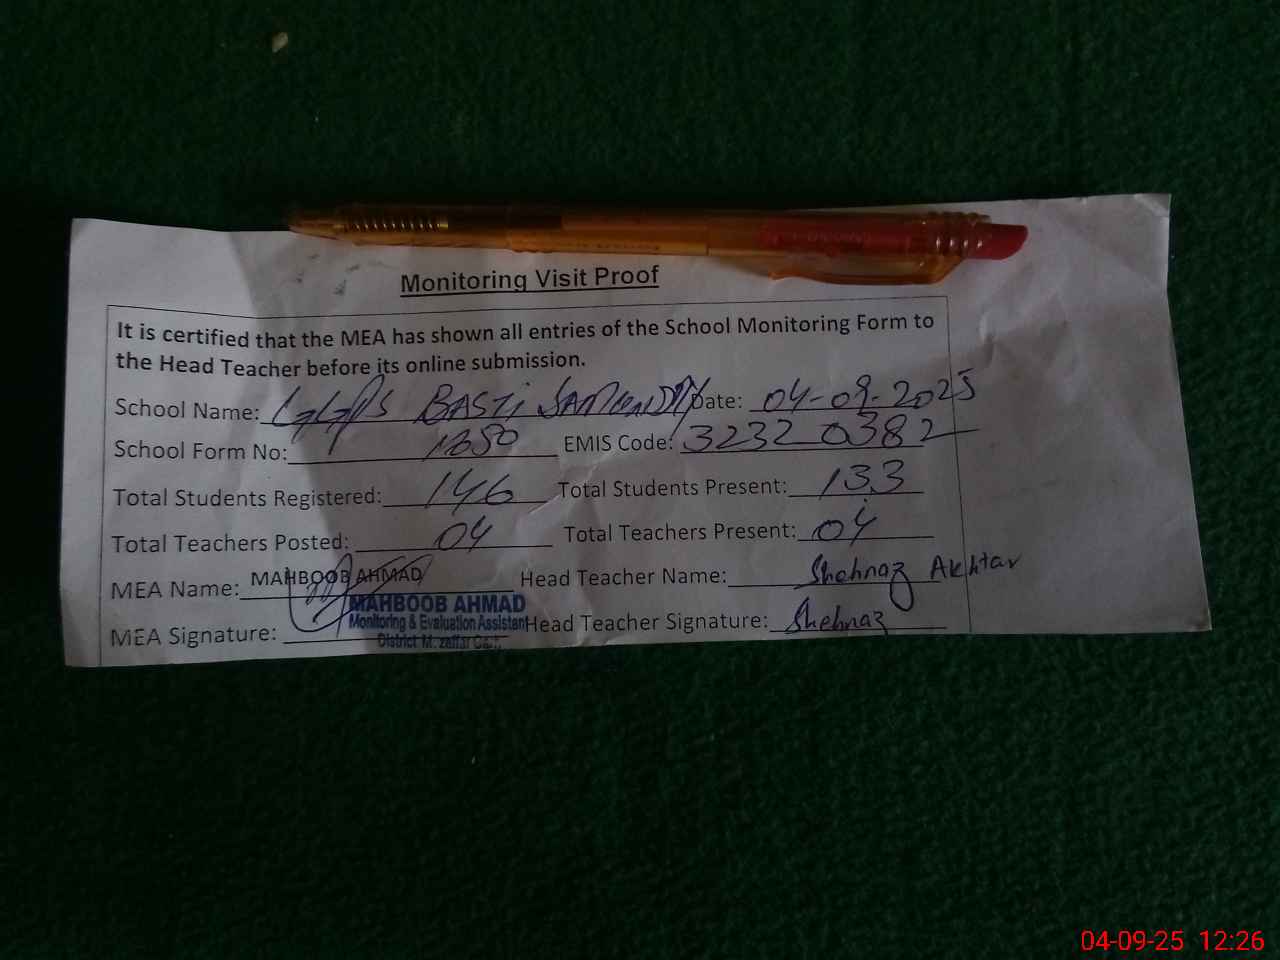 Monitoring Visit Proof
It is certified that the MEA has shown all entries of the School Monitoring Form to
the Head Teacher before its online submission.
School Name: GGPS BASTI Date: 04-09-2025
School Form No: EMIS Code: 32320382
Total Students Registered: 146 Total Students Present: 133
Total Teachers Posted: 04 Total Teachers Present: 04
MEA Name: MAHBOOB AHMAD Head Teacher Name: Shehnaz Akhtar
MEA Signature: Head Teacher Signature: Shehnaz
MAHBOOB AHMAD
Monitoring & Evaluation Assistant
District M.
04-09-25 12:26